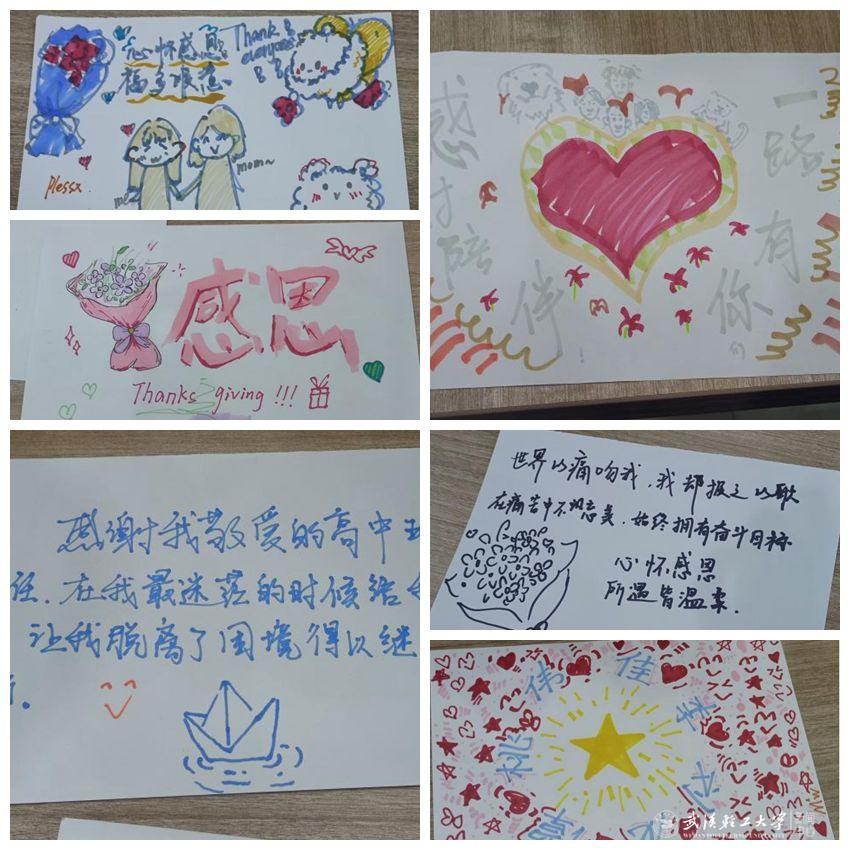 心怀感恩
福多难忘
Thank
everyone
me
mom~
感谢陪伴
一路有你们
感恩
Thanks giving !!!
感谢我敬爱的高中
任.在我最迷茫的时候给
让我脱离了困境得以继
世界以痛吻我,我却报之以歌
在痛苦中不
始终拥有奋斗目标
心怀感恩
所遇皆温柔.
伟佳李
桃
武汉轻工大学